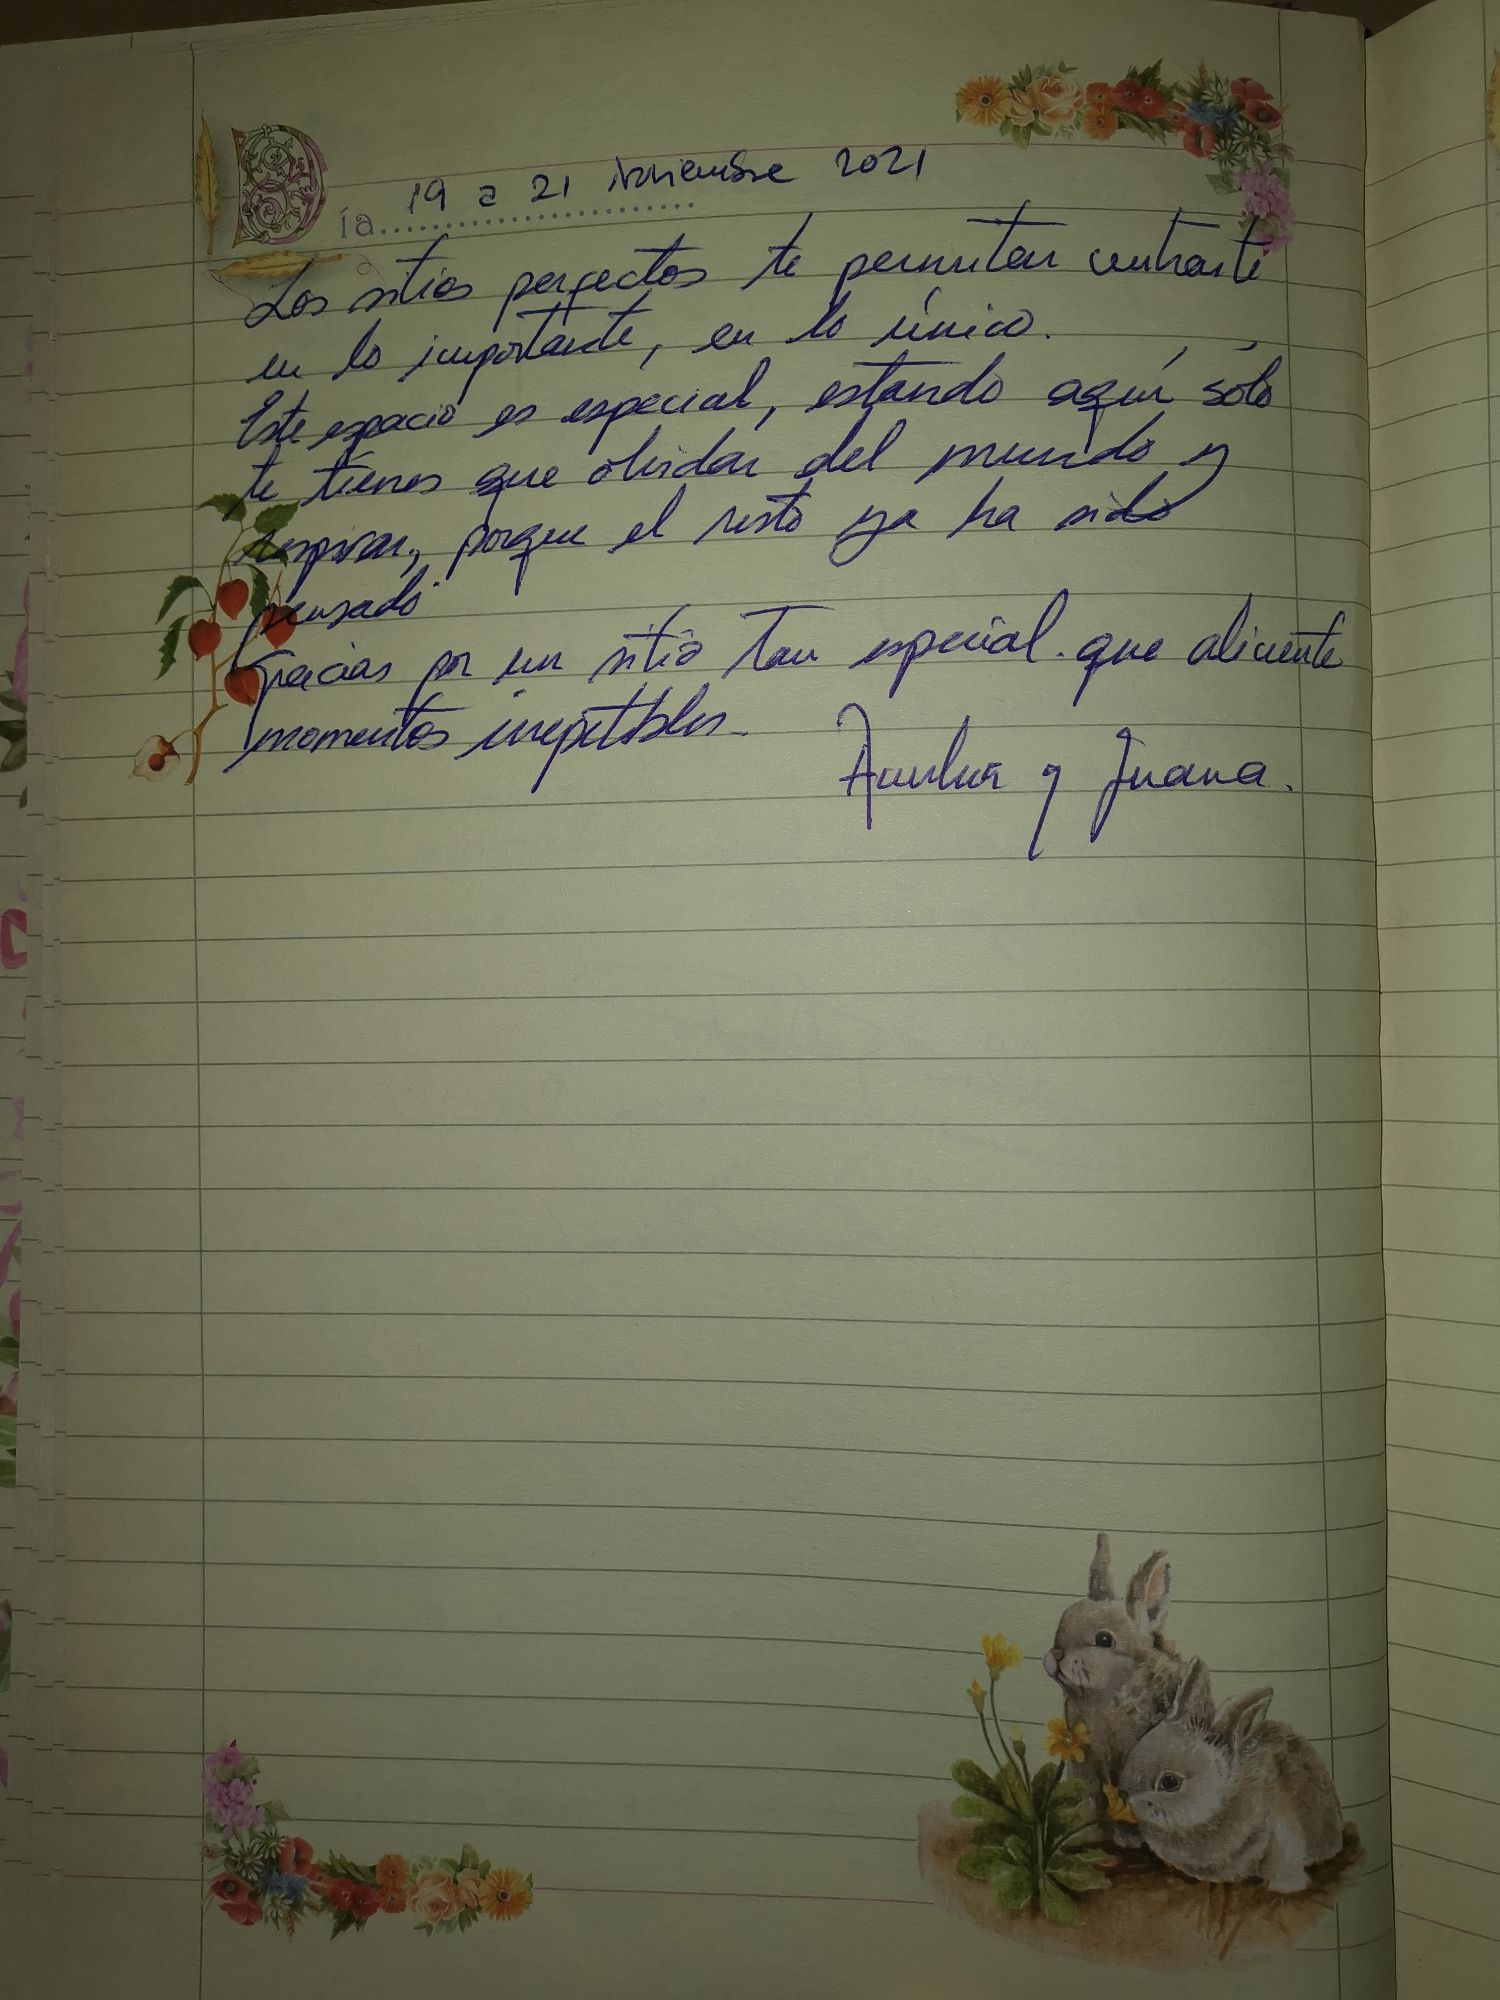 Día 19 a 21 Noviembre 2021
Los sitios perfectos te permiten centrarte
en lo importante, en lo único.
Este espacio es especial, estando aquí sólo
te tienes que olvidar del mundo y
respirar, porque el resto ya ha sido
pensado.
Gracias por un sitio tan especial que alimente
momentos irrepetibles.
y Juana.